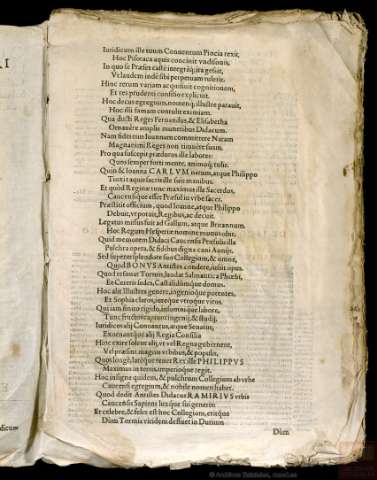 Iuridicum ille tuum Conuentum Pincia rexit,
Hoc Pisoraca aquis concinit vndisonis,
In quo se Præses castè integréq; ita gessit,
Vt laudem inde sibi perpetuam tulerit.
Hinc rerum variam acquisiuit cognitionem,
Et res prudenti consilio explicuit.
Hoc decus egregium, nomenq; illustre parauit,
Hoc illi famam contulit eximiam.
Qua ducti Reges Fernandus, & Elisabetha
Ornauêre amplis muneribus Didacum.
Nam fidei tum Ioannam committere Natam
Magnanimi Reges non timuêre suam.
Pro qua suscepit præduros ille labores
Quos semper forti mente, animoq; tulit.
Quin & Ioanna CARLVM natum, atque Philippo
Tinxit aquis sacris ille suis manibus.
Et quòd Reginæ tunc maximus ille Sacerdos,
Caucensisque esset Præsul in vrbe sacer.
Præstitit officium, quod Ioannæ, atque Philippo
Debuit, vt potuit, Regibus, ac decuit.
Legatus missus fuit ad Gallum, atque Britannum.
Hoc Regum Hesperiæ nomine munus obit.
Quid memorem Didaci Caucensis Præsulis illa
Pulchra opera, & fidibus digna cani Aonijs.
Sed superet splendore suo Collegium, & ornet,
Quod BONVS Antistes condere iussit opus.
Quod resonat Tormis, laudat Salmantica Phœbi,
Et Cereris sedes, Castalidúmque domus.
Hoc alit Illustres genere, ingenioque potentes,
Et Sophia claros, iureque vtroque viros.
Qui iam finito rigido, iustumque labore,
Tunc fructus capiunt ingenij, & studij.
Iuridicos alij Conuentus, atque Senatus,
Exornantque alij Regia Consilia
Hinc exire solent alij, vt vel Regna gubernent,
Vel præsint magnis vrbibus, & populis,
Quos longè, latéque tenet Rex ille PHILIPPVS
Maximus in terris, imperioque tegit.
Hoc insigne quidem, & pulchrum Collegium ab vrbe
Caucensi egregium, & nobile nomen habet.
Quod dedit Antistes Didacus RAMIRIVS vrbis
Caucensis Sapiens luxque sui generis
Et celebre, & felix est hoc Collegium, eritque
Dùm Tormis viridem defluet in Durium
Dùm